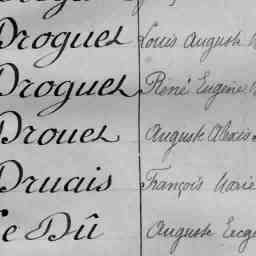 Droguet Louis Auguste
Droguet René Eugène
Drouet Auguste Alexis
Druais François Marie
Le Dû Auguste